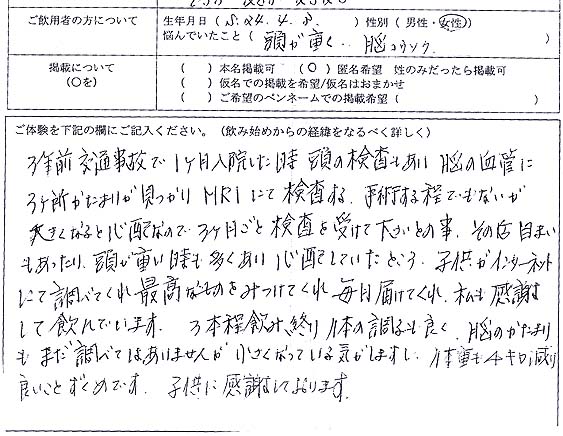 ご飲用者の方について
生年月日( S.24.4.8. ) 性別 ( 男性・女性 )
悩んでいたこと ( 頭が重く.. 脳コウソク.
掲載について
(○を)
( ) 本名掲載可 ( O ) 匿名希望 姓のみだったら掲載可
( ) 仮名での掲載を希望/仮名はおまかせ
( ) ご希望のペンネームでの掲載希望 ( )
ご体験を下記の欄にご記入ください。(飲み始めからの経緯をなるべく詳しく)
3年前交通事故で1ヶ月入院した時 頭の検査もあり 脳の血管に
3ヶ所かたまりが見つかり MRIにて検査する. 手術する程でもないが
大きくなると心配なので 3ヶ月ごと検査を受けて下さいとの事. その后目まい
もあったり. 頭が重い時も多くあり心配していたところ. 子供がインターネット
にて調べてくれ最高なものをみつけてくれ毎日届けてくれ. 私も感謝
して飲んでいます. 3本程飲み終り体の調子も良く. 脳のかたまり
もまだ調べてはありませんが小さくなっている気がしますし. 体重も4キロ減り
良いことずくめです. 子供に感謝しております.